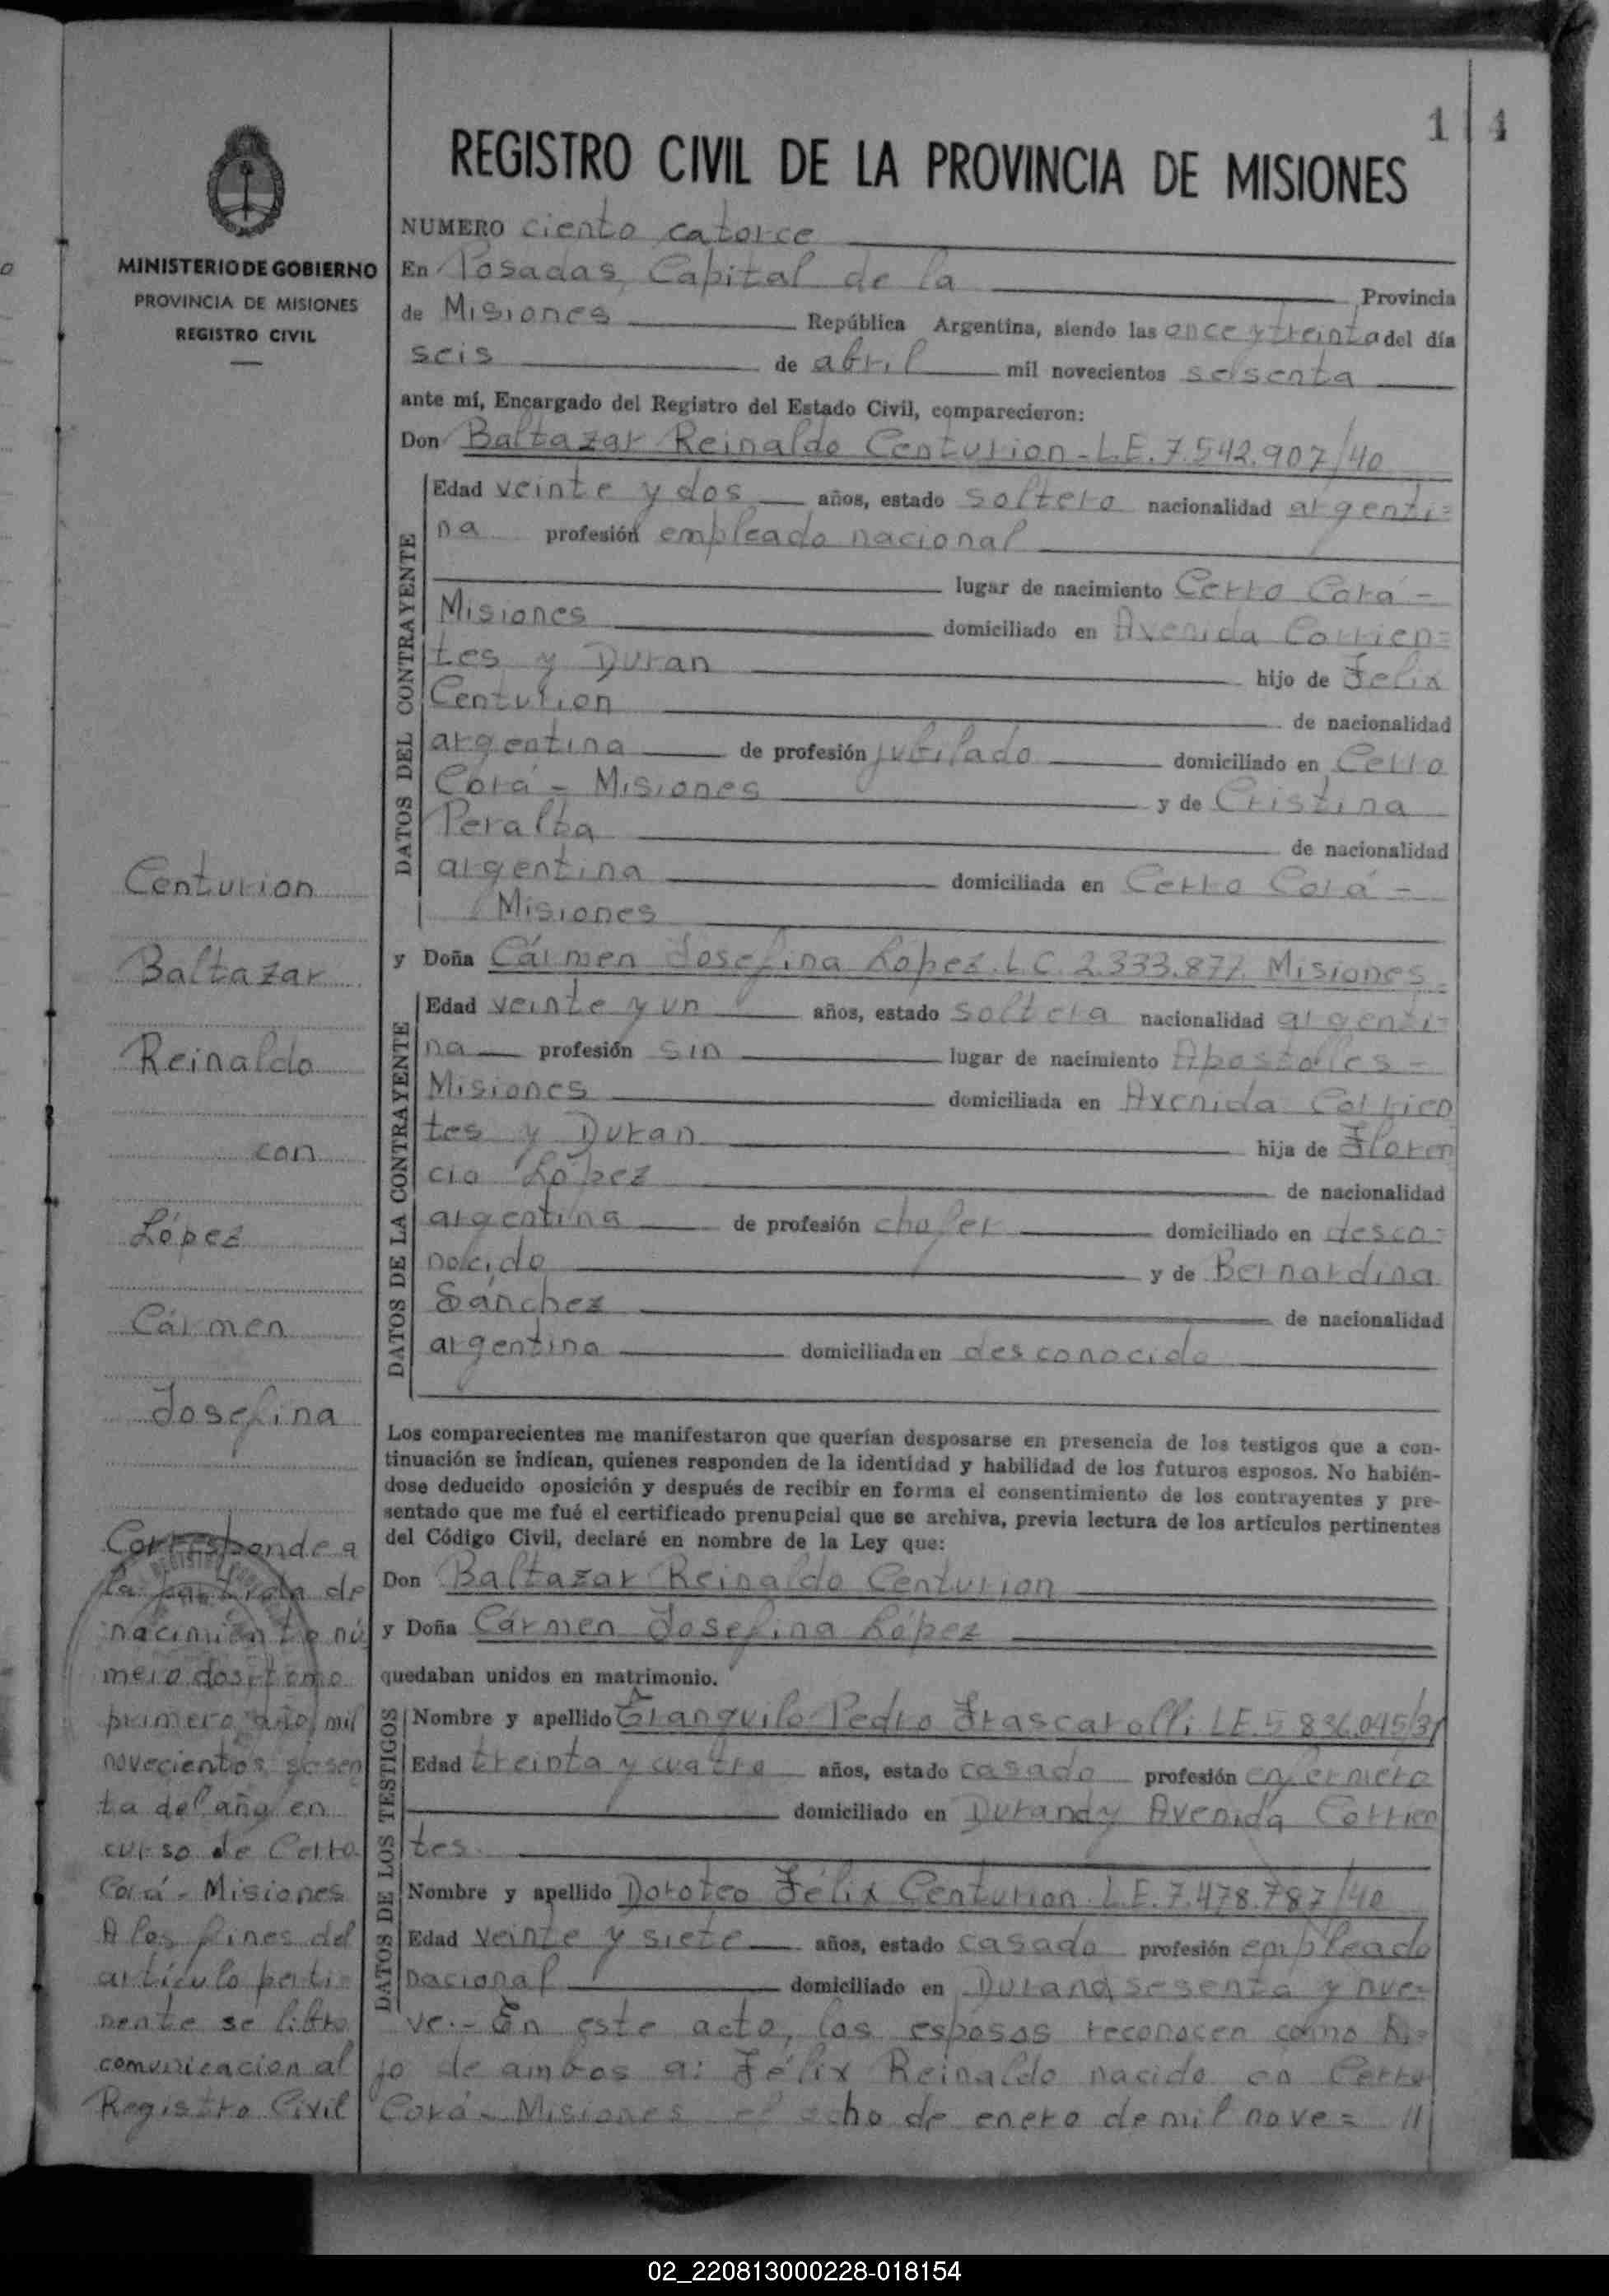 114
REGISTRO CIVIL DE LA PROVINCIA DE MISIONES
MINISTERIO DE GOBIERNO
PROVINCIA DE MISIONES
REGISTRO CIVIL
NUMERO ciento catorce
En Posadas, Capital de la Provincia
de Misiones República Argentina, siendo las once y treinta del día
seis de abril mil novecientos sesenta
ante mí, Encargado del Registro del Estado Civil, comparecieron:
Don Baltazar Reinaldo Centurion - L.E. 7.542.907/40
DATOS DEL CONTRAYENTE
Edad veinte y dos años, estado soltero nacionalidad argenti=
na profesión empleado nacional
lugar de nacimiento Cerro Corá -
Misiones domiciliado en Avenida Corrien=
tes y Duran hijo de Felix
Centurion de nacionalidad
argentina de profesión jubilado domiciliado en Cerro
Corá - Misiones y de Cristina
Peralta de nacionalidad
argentina domiciliada en Cerro Corá -
Misiones
y Doña Cármen Josefina López. L.C. 2.333.877. Misiones
DATOS DE LA CONTRAYENTE
Edad veinte y un años, estado soltera nacionalidad argenti=
na profesión sin lugar de nacimiento Apostoles -
Misiones domiciliada en Avenida Corrien
tes y Duran hija de Floren
cio López de nacionalidad
argentina de profesión chofer domiciliado en desco=
nocido y de Bernardina
Sánchez de nacionalidad
argentina domiciliada en desconocido
Los comparecientes me manifestaron que querían desposarse en presencia de los testigos que a con-
tinuación se indican, quienes responden de la identidad y habilidad de los futuros esposos. No habién-
dose deducido oposición y después de recibir en forma el consentimiento de los contrayentes y pre-
sentado que me fué el certificado prenupcial que se archiva, previa lectura de los artículos pertinentes
del Código Civil, declaré en nombre de la Ley que:
Don Baltazar Reinaldo Centurion
y Doña Cármen Josefina López
quedaban unidos en matrimonio.
DATOS DE LOS TESTIGOS
Nombre y apellido Tranquilo Pedro Frascarolli L.E. 5.836.045/31
Edad treinta y cuatro años, estado casado profesión enfermero
domiciliado en Durand y Avenida Corrien
tes.
Nombre y apellido Doroteo Félix Centurion. L.E. 7.478.787/40
Edad veinte y siete años, estado casado profesión empleado
nacional domiciliado en Durand sesenta y nue=
ve.- En este acto, los esposos reconocen como hi=
jo de ambos a: Félix Reinaldo nacido en Cerro
Corá - Misiones el ocho de enero de mil nove= //
Centurion
Baltazar
Reinaldo
con
López
Cármen
Josefina
Corresponde a
la partida de
nacimiento nú
mero dos, tomo
primero, año mil
novecientos sesen
ta del año en
curso de Cerro
Corá - Misiones
A los fines del
artículo perti=
nente se libro
comunicacion al
Registro Civil
02_220813000228-018154